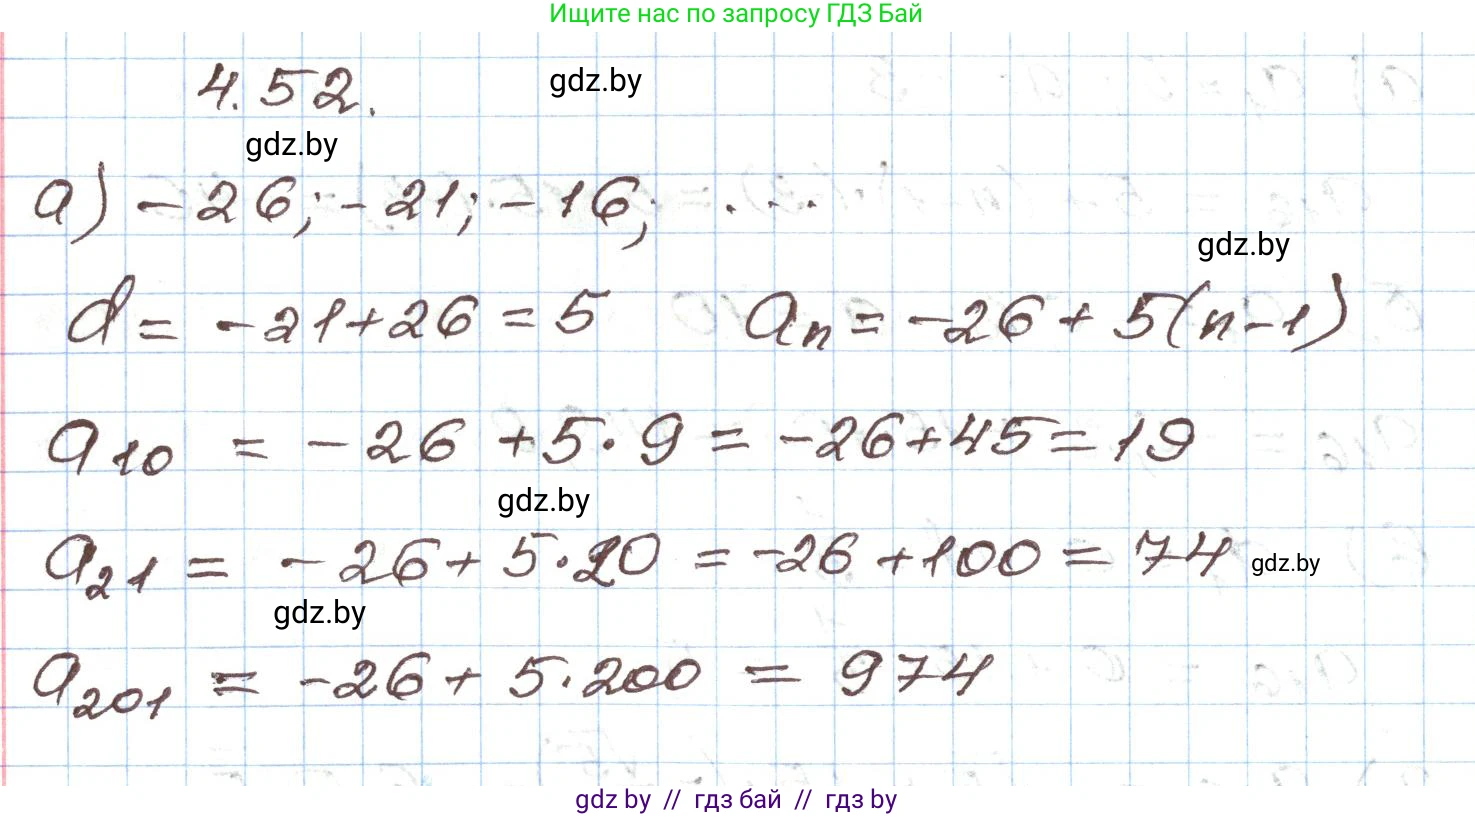 Ищите нас по запросу ГДЗ Бай
4.52.
gdz.by
gdz.by
а) -26; -21; -16; ...
gdz.by
d = -21+26 = 5    aₙ = -26 + 5(n-1)
a₁₀ = -26 + 5·9 = -26+45 = 19
gdz.by
a₂₁ = -26 + 5·20 = -26 + 100 = 74
gdz.by
gdz.by
a₂₀₁ = -26 + 5·200 = 974
gdz by // гдз бай // гдз by